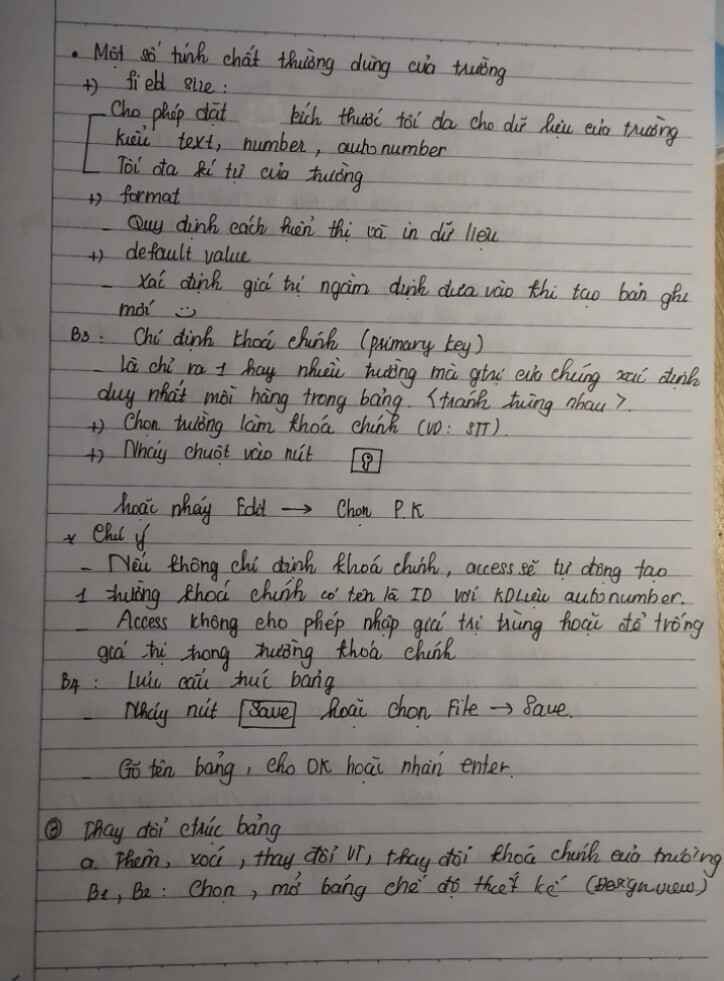 • Một số tính chất thường dùng của trường
+) field size:
- Cho phép đặt kích thước tối đa cho dữ liệu của trường
kiểu text, number, autonumber
- Tối đa kí tự của trường
+) format
- Quy định cách hiển thị và in dữ liệu
+) default value
- Xác định giá trị ngầm định đưa vào khi tạo bản ghi
mới :)
B3: Chỉ định khoá chính (primary key)
- là chỉ ra 1 hay nhiều trường mà gtrị của chúng xác định
duy nhất mỗi hàng trong bảng. <tránh trùng nhau>.
+) Chọn trường làm khoá chính (VD: STT).
+) Nháy chuột vào nút
hoặc nháy Edit → Chọn P.K
* Chú ý
- Nếu không chỉ định khoá chính, access sẽ tự động tạo
1 trường khoá chính có tên là ID với KDLiệu autonumber.
- Access không cho phép nhập giá trị trùng hoặc để trống
giá trị trong trường khoá chính
B4: Lưu cấu trúc bảng
- Nháy nút Save hoặc chọn File → Save.
- Gõ tên bảng, cho OK hoặc nhấn enter.
③ Thay đổi ctrúc bảng
a. Thêm, xoá, thay đổi VT, thay đổi khoá chính của trường
B1, B2: Chọn, mở bảng chế độ thiết kế (Design view)